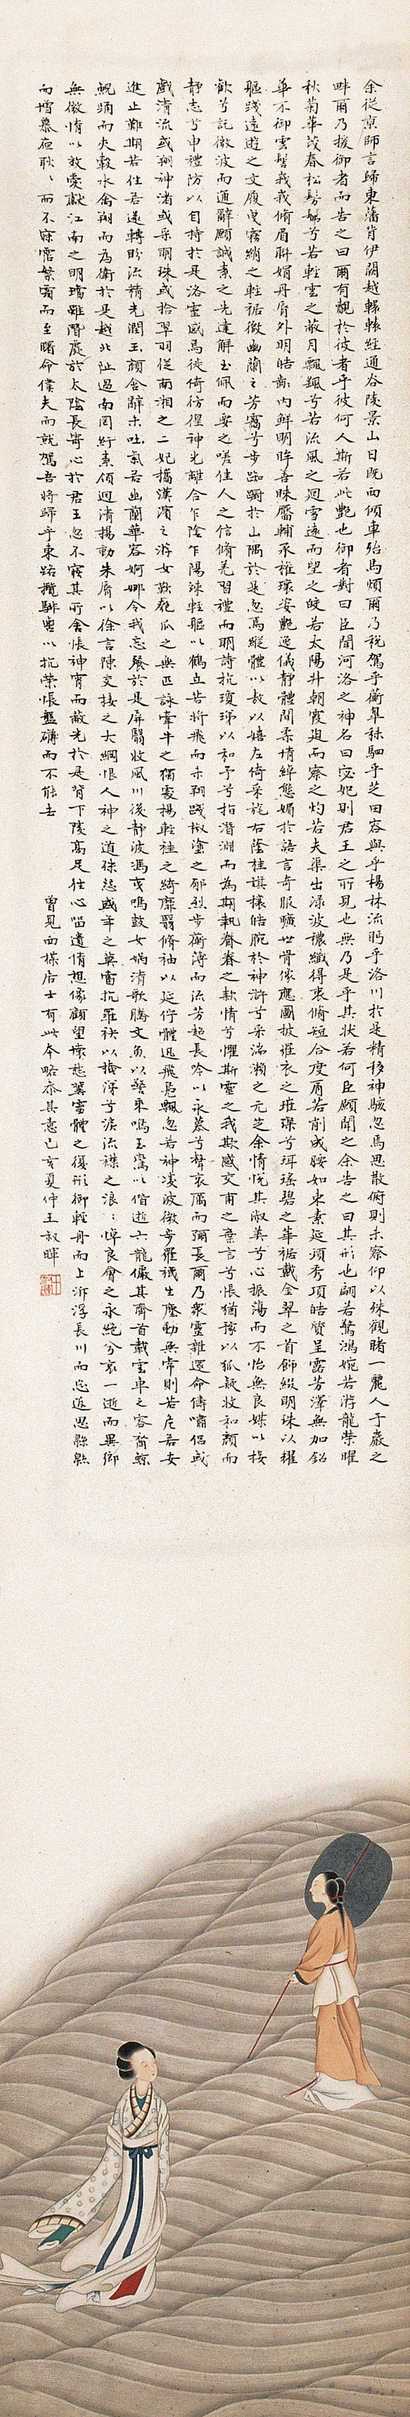 余從京師言歸東藩背伊闕越轘轅經通谷陵景山日既而傾車殆馬煩爾乃税駕乎蘅皋秣駟乎芝田容與乎楊林流眄乎洛川於是精移神駭忽焉思散俯則未察仰以殊觀睹一麗人于巖之
畔爾乃援御者而告之曰爾有覿於彼者乎彼何人斯若此豔也御者對曰臣聞河洛之神名曰宓妃則君王之所見也無乃是乎其狀若何臣願聞之余告之曰其形也翩若驚鴻婉若游龍榮曜
秋菊華茂春松髣髴兮若輕雲之蔽月飄颻兮若流風之迴雪遠而望之皎若太陽升朝霞迫而察之灼若夫渠出淥波穠纖得衷脩短合度肩若削成腰如束素延頸秀項皓質呈露芳澤無加鉛
華不御雲髻峩峩脩眉聯娟丹脣外朗皓齒內鮮明眸善睞靨輔承權瓌姿艷逸儀靜體閑柔情綽態媚於語言奇服曠世骨像應圖披羅衣之璀璨兮珥瑤碧之華裾戴金翠之首飾綴明珠以耀
軀踐遠遊之文履曳霧綃之輕裾微幽蘭之芳藹兮步踟躕於山隅於是忽焉縱體以敖以嬉左倚采旄右蔭桂旗攘皓腕於神滸兮采湍瀨之元芝余情悅其淑美兮心振蕩而不怡無良媒以接
歡兮託微波而通辭願誠素之先達解玉佩而要之嗟佳人之信脩羌習禮而明詩抗瓊珶以和予兮指潛淵而為期執眷眷之款情兮懼斯靈之我欺感交甫之棄言兮悵猶豫以狐疑收和顏而
靜志兮申禮防以自持於是洛靈感焉徙倚彷徨神光離合乍陰乍陽竦輕軀以鶴立若將飛而未翔踐椒塗之郁烈步蘅薄而流芳超長吟以永慕兮聲哀厲而彌長爾乃衆靈雜遝命儔嘯侶或
戲清流或翔神渚或采明珠或拾翠羽從南湘之二妃攜漢濱之游女歎匏瓜之無匹詠牽牛之獨處揚輕袿之綺靡翳脩袖以延佇體迅飛鳧飄忽若神凌波微步羅襪生塵動無常則若危若安
進止難期若往若還轉盼流精光潤玉顏含辭未吐氣若幽蘭華容婀娜令我忘餐於是屏翳收風川后靜波馮夷鳴鼓女媧清歌騰文魚以警乘鳴玉鸞以偕逝六龍儼其齊首載雲車之容裔鯨
鯢踊而夾轂水禽翔而為衛於是越北沚過南岡紆素領迴清揚動朱脣以徐言陳交接之大綱恨人神之道殊怨盛年之莫當抗羅袂以掩涕兮淚流襟之浪浪悼良會之永絕兮哀一逝而異鄉
無微情以效愛獻江南之明璫雖潛處於太陰長寄心於君王忽不寤其所舍悵神宵而蔽光於是背下陵高足往心留遺情想像顧望懷愁冀靈體之復形御輕舟而上泝浮長川而忘返思緜緜
而增慕夜耿耿而不寐霑繁霜而至曙命僕夫而就駕吾將歸乎東路攬騑轡以抗策悵盤桓而不能去
曾見面樵居士有此本略參其意己亥夏仲王叔暉